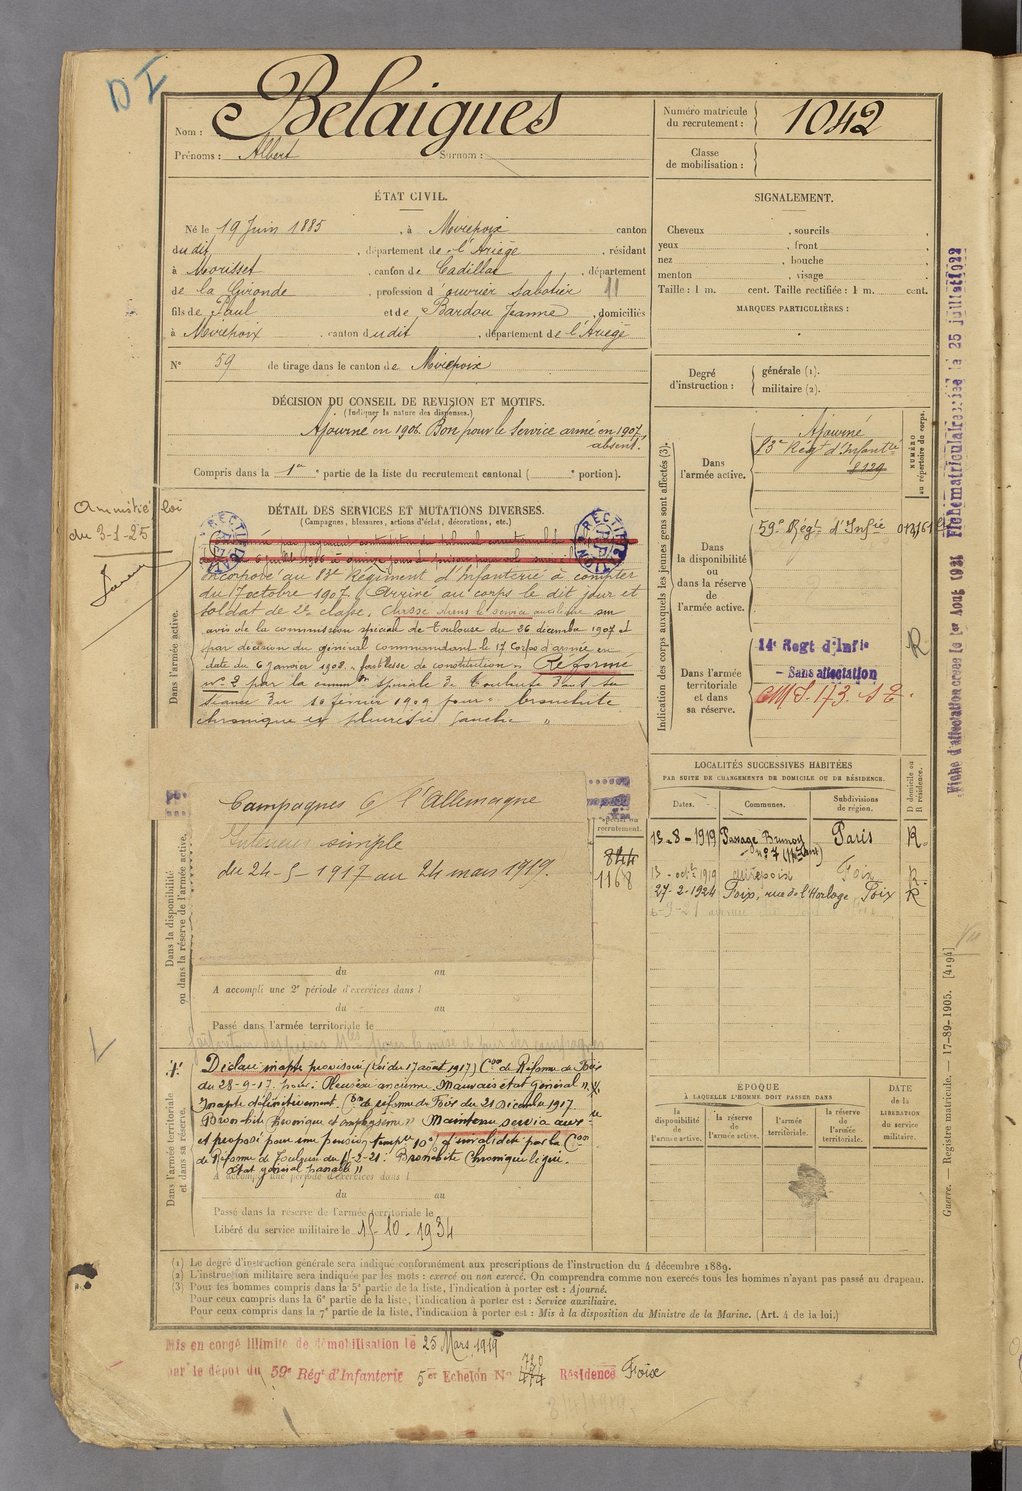 DI
Nom : Belaigues
Prénoms : Albert Surnom :
Numéro matricule du recrutement : 1042
Classe de mobilisation :
ÉTAT CIVIL.
Né le 19 Juin 1885, à Mirepoix canton
du dit, département de l'Ariège, résidant
à Morisset, canton de Cadillac, département
de la Gironde, profession d'ouvrier sabotier 11
fils de Paul et de Bardou Jeanne, domiciliés
à Mirepoix canton du dit, département de l'Ariège
N° 59 de tirage dans le canton de Mirepoix
SIGNALEMENT.
Cheveux , sourcils ,
yeux , front ,
nez , bouche ,
menton , visage .
Taille : 1 m. cent. Taille rectifiée : 1 m. cent.
MARQUES PARTICULIÈRES :
Degré d'instruction : générale (1).
militaire (2).
DÉCISION DU CONSEIL DE REVISION ET MOTIFS.
(Indiquer la nature des dispenses.)
Ajourné en 1906. Bon pour le Service armé en 1907
absent.
Compris dans la 1re partie de la liste du recrutement cantonal ( e portion).
Amnistié loi
du 3-1-25
DÉTAIL DES SERVICES ET MUTATIONS DIVERSES.
(Campagnes, blessures, actions d'éclat, décorations, etc.)
RECTIFICATION
RECTIFICATION
Dans l'armée active.
Incorporé au 83e Régiment d'Infanterie à compter
du 7 octobre 1907. Arrivé au corps le dit jour et
soldat de 2e classe. Classé dans le service auxiliaire sur
avis de la commission spéciale de Toulouse du 26 décembre 1907 et
par décision du général commandant le 17 Corps d'armée en
date du 6 janvier 1908. "faiblesse de constitution" Réformé
n° 2 par la comm on spéciale de Toulouse dans sa
séance du 10 février 1909 pour "bronchite
chronique et pleurésie gauche"
Dans la disponibilité
ou dans la réserve de l'armée active.
Campagnes C/ l'Allemagne
Intérieur simple
du 24-5-1917 au 24 mars 1919.
spécial au
recrutement.
844
1168
du au
A accompli une 2e période d'exercices dans l
du au
Passé dans l'armée territoriale le
Dans l'armée territoriale
et dans sa réserve.
Déclaré inapte provisoire (Loi du 17 août 1917) Con de Réforme de Foix
du 28-9-17. pour : Pleurésie ancienne, Mauvais état général".
Inapte définitivement. Con de réforme de Foix du 21 Décembre 1917
Bronchite chronique et emphysème" Maintenu service aux re
et proposé pour une pension tempre 10% d'invalidité par la Con
de Réforme de Toulouse du 11-2-21 : Bronchite Chronique légère.
état général passable"
A accompli une période d'exercices dans l
du au
Passé dans la réserve de l'armée territoriale le
Libéré du service militaire le 15-10-1934
Indication des corps auxquels les jeunes gens sont affectés (3).
NUMÉRO
au répertoire du corps.
Dans l'armée active.
Ajourné
83e Régt d'Infantie
8129
Dans la disponibilité ou dans la réserve de l'armée active.
59e Régt d'Infie 013161
Dans l'armée territoriale et dans sa réserve.
14e Regt d'Infie
- Sans affectation
C.M S. 173. S E.
R
LOCALITÉS SUCCESSIVES HABITÉES
PAR SUITE DE CHANGEMENTS DE DOMICILE OU DE RÉSIDENCE.
Dates. Communes. Subdivisions de région. D domicile ou R résidence.
13-8-1919 Passage Brunoy n° 7 Paris R.
13-octe 1919 Mirepoix Foix R.
27-2-1924 Foix, rue de l'Horloge Foix R
ÉPOQUE
À LAQUELLE L'HOMME DOIT PASSER DANS
la disponibilité de l'armée active.
la réserve de l'armée active.
l'armée territoriale.
la réserve de l'armée territoriale.
DATE de la LIBÉRATION du service militaire.
Fiche d'affectation créée le 1er Aout 1931 Fiche matriculaire créée le 25 juillet 1922
Guerre. — Registre matricule. — 17-89-1905. [4194]
(1) Le degré d'instruction générale sera indiqué conformément aux prescriptions de l'instruction du 4 décembre 1889.
(2) L'instruction militaire sera indiquée par les mots : exercé ou non exercé. On comprendra comme non exercés tous les hommes n'ayant pas passé au drapeau.
(3) Pour les hommes compris dans la 5e partie de la liste, l'indication à porter est : Ajourné.
Pour ceux compris dans la 6e partie de la liste, l'indication à porter est : Service auxiliaire.
Pour ceux compris dans la 7e partie de la liste, l'indication à porter est : Mis à la disposition du Ministre de la Marine. (Art. 4 de la loi.)
Mis en congé illimité de démobilisation le 25 Mars 1919
par le dépôt du 59e Régt d'Infanterie 5er Echelon N° 720 474 Résidence Foix